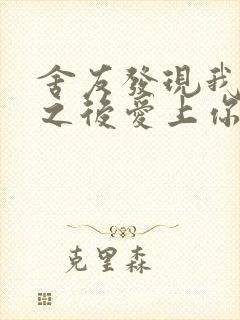 舍友發現我
之後愛上你
克里森